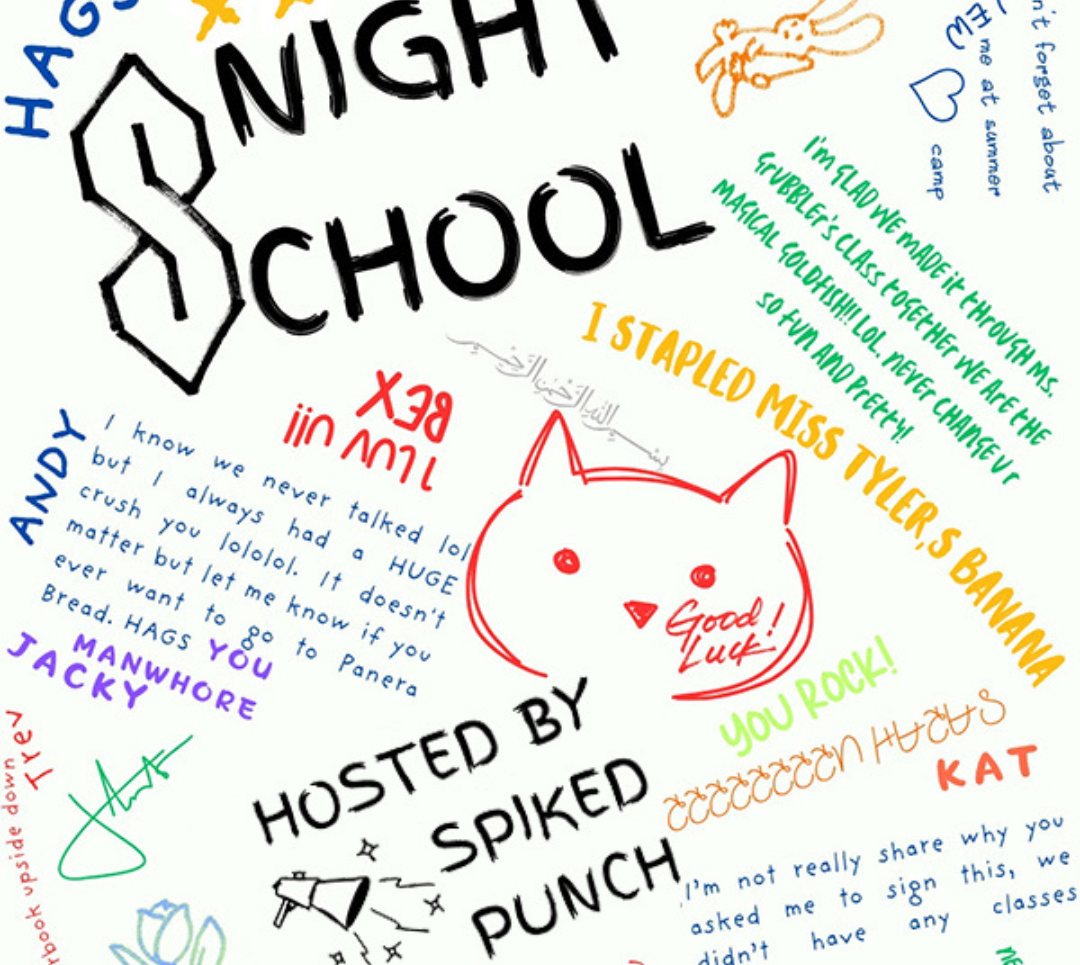 HAGS
NIGHT
SCHOOL
n't forget about
me at summer
camp
I'm GLAD WE MADE it tHrOUGH Ms.
GrUBBLEr's CLAss tOGEtHEr WE ArE tHE
MAGICAL GOLDFISH!! LOL. NEVEr CHANGE Ur
sO fUN AND PrEttY!
I STAPLED MISS TYLER,S BANANA
بسم الله الرحمن الرحيم
I LUV Ujii
BEX
ANDY
I know we never talked lol
but I always had a HUGE
crush you lololol. It doesn't
matter but let me know if you
ever want to go to Panera
Bread. HAGS YOU
MANWHORE
JACKY
Good
Luck!
YOU ROCK!
KAT
Trev
rbook upside down
HOSTED BY
SPIKED
PUNCH
I'm not really share why you
asked me to sign this, we
didn't have any classes